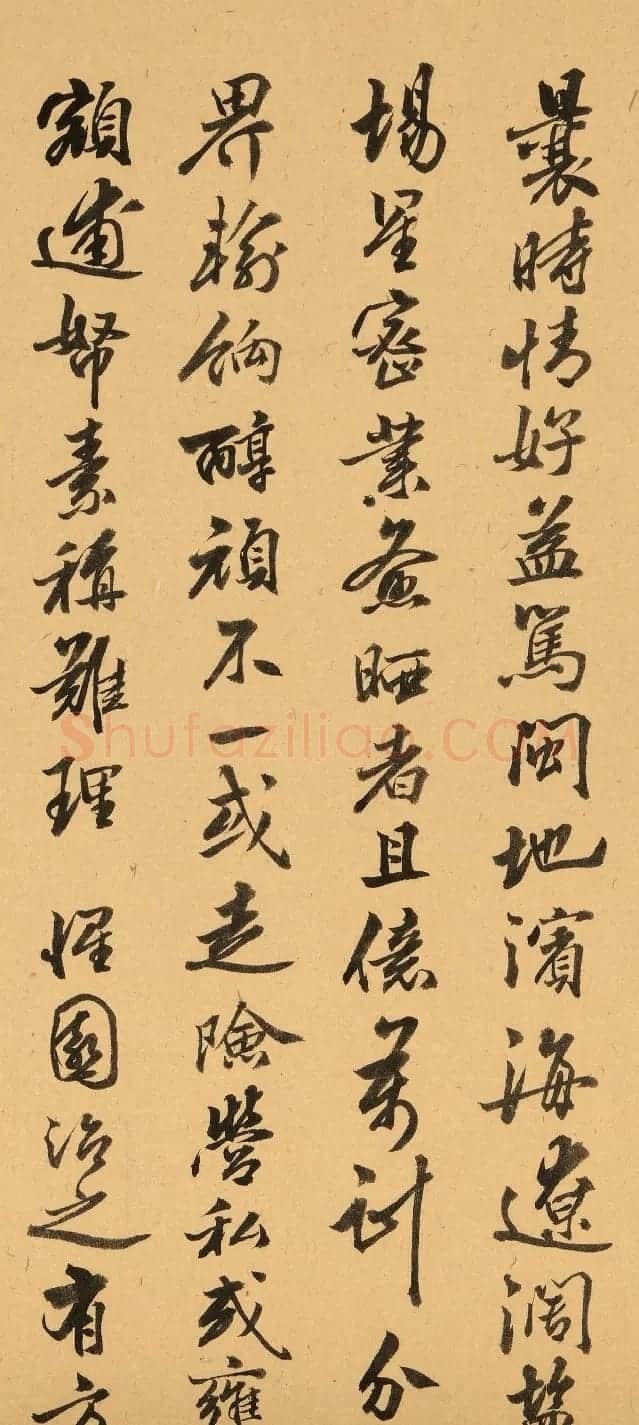 曩時情好益篤閩地濱海遼濶鹽
場星密業煎晒者且億萬計分
界輸餉醇頑不一或走險營私或雍
額逋帑素稱難理惺園治之有方
Shufaziliao.COM